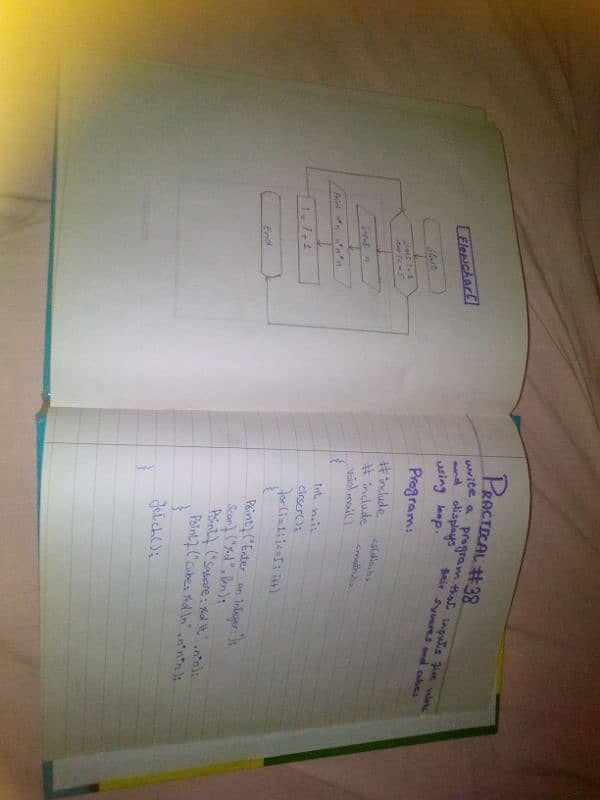 Flowchart
Start
Input n
Print n*n n*n*n
i = i + 1
End
PRACTICAL # 38
write a program that inputs five
and displays their squares and cubes
using loop.
Program:
# include <stdio.h>
# include
void
{
int n, i;
clrscr();
for(i=1; i<=5; i++)
{
Printf("Enter an integer:");
Scanf("%d", &n);
Printf("Square: %d \t", n*n);
Printf("Cube: %d \n", n*n*n);
}
getch();
}